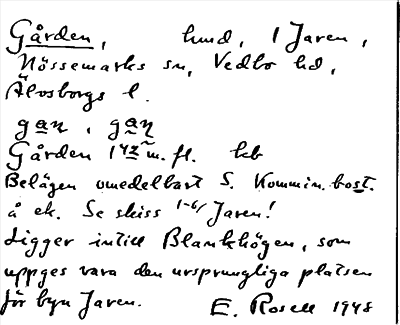 Gården, hmd, 1 Jaren,
Nössemarks sn, Vedbo hd,
Älvsborgs l.
gaṇ, gaṇ
Gården 1 42 m. fl. kb
Belägen omedelbart S. Kommin. bost.
å ek. Se skiss 1-6/ Jaren!
Ligger intill Blankhögen, som
uppges vara den ursprungliga platsen
för byn Jaren. E. Rosell 1948